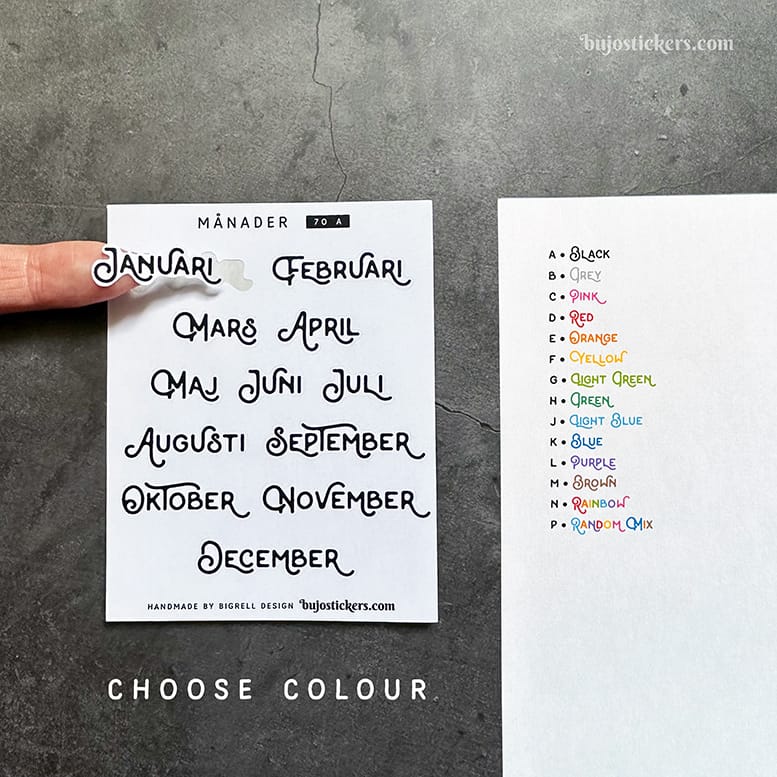 bujostickers.com
MÅNADER 70 A
JANUARI FEBRUARI
MARS APRIL
MAJ JUNI JULI
AUGUSTI SEPTEMBER
OKTOBER NOVEMBER
DECEMBER
HANDMADE BY BIGRELL DESIGN bujostickers.com
CHOOSE COLOUR
A • BLACK
B • GREY
C • PINK
D • RED
E • ORANGE
F • YELLOW
G • LIGHT GREEN
H • GREEN
J • LIGHT BLUE
K • BLUE
L • PURPLE
M • BROWN
N • RAINBOW
P • RANDOM MIX